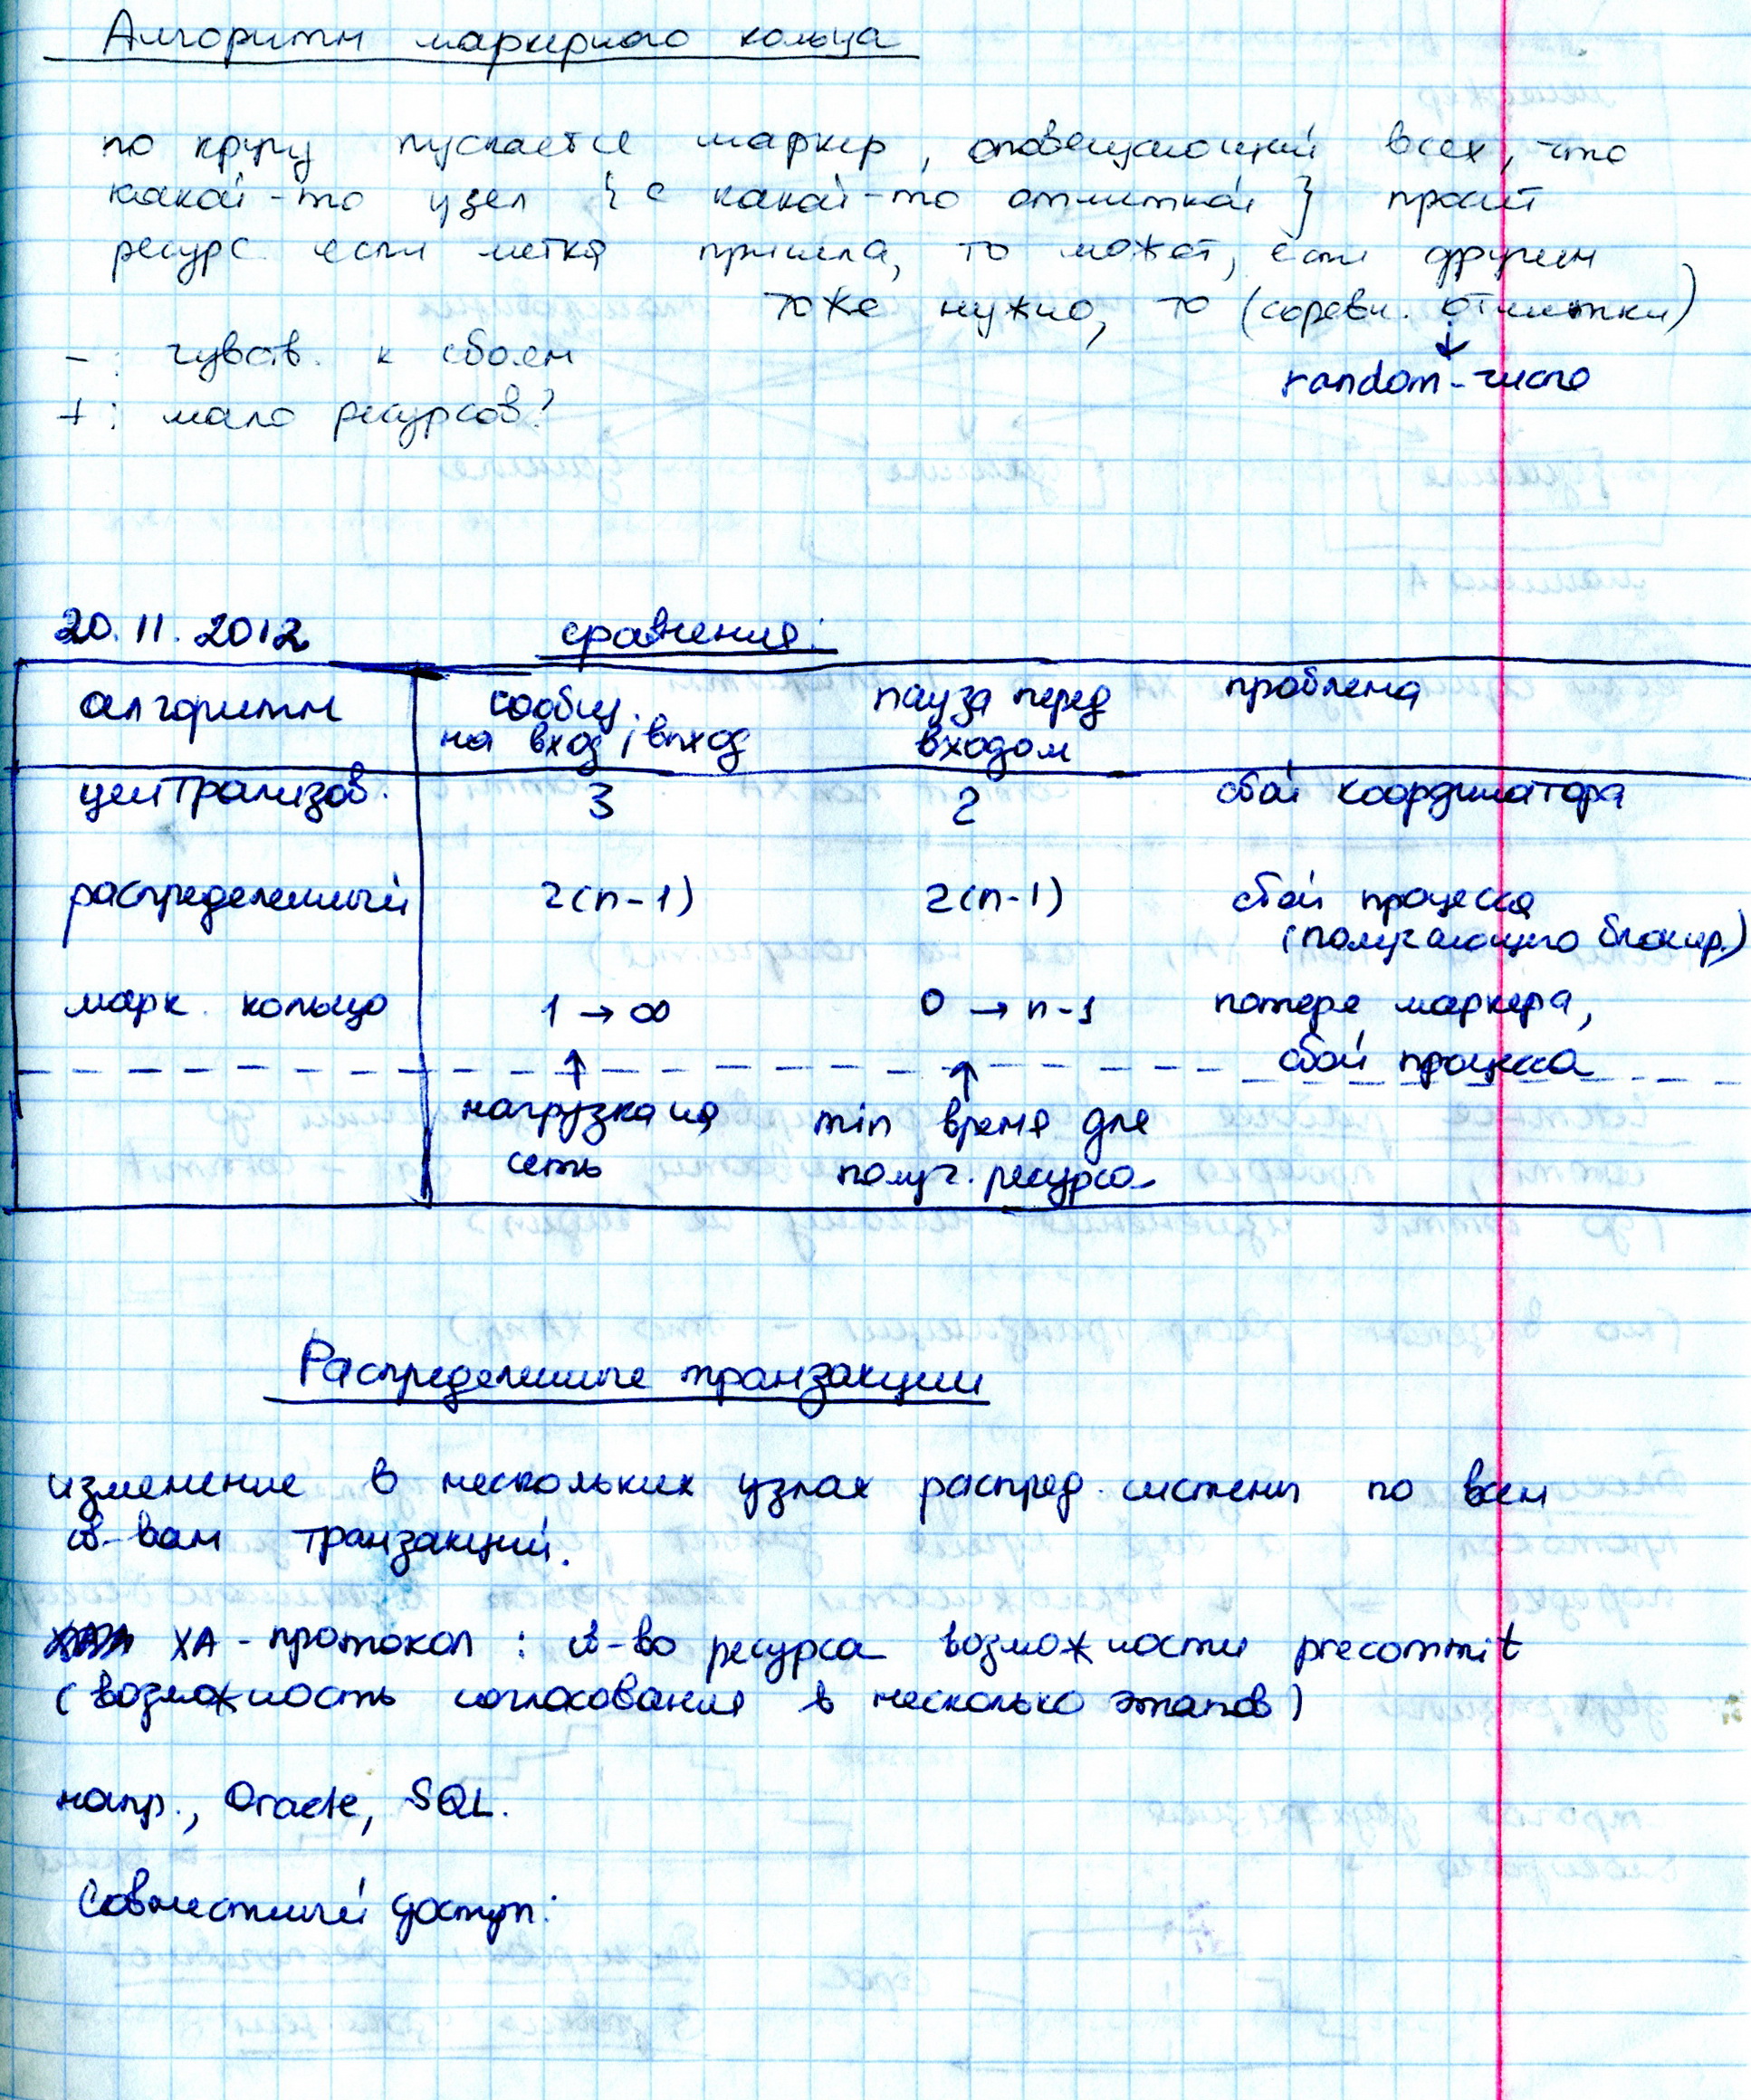 Алгоритм маркерного кольца
по кругу пускается маркер, оповещающий всех, что
какой-то узел { с какой-то отметкой } просит
ресурс. если метка пришла, то может, если другим
тоже нужно, то (соревн. отметки)
↓
random-число
- : чувств. к сбоям
+ : мало ресурсов?
20.11.2012 сравнения:
алгоритм сообщ. на вход/выход пауза перед входом проблема
централизов. 3 2 сбой координатора
распределенный 2(n-1) 2(n-1) сбой процесса
(получающего блокир.)
марк. кольцо 1 → ∞ 0 → n-1 потеря маркера,
сбой процесса
↑ ↑
нагрузка на min время для
сеть получ. ресурса
Распределенные транзакции
изменение в нескольких узлах распред. системы по всем
св-вам транзакций.
XA-протокол : св-во ресурса возможности precommit
(возможность согласования в несколько этапов)
напр., Oracle, SQL.
Совместный доступ: